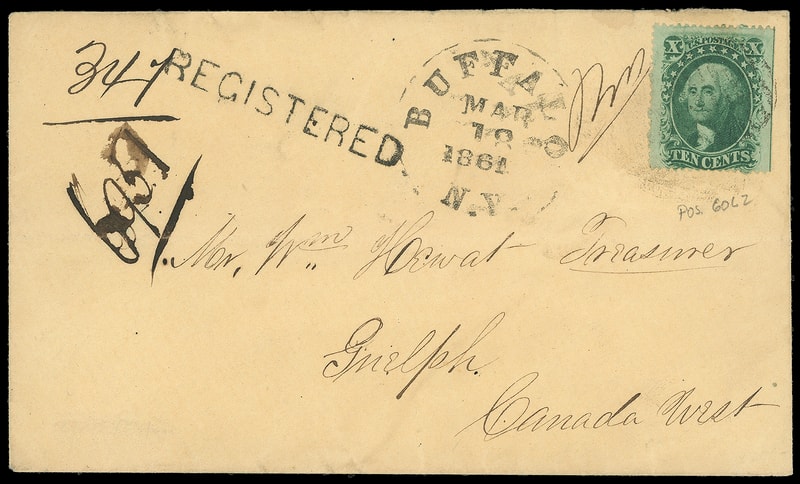 347
REGISTERED
BUFFALO
MAR
18
1861
N.Y.
X U.S. POSTAGE X
TEN CENTS
POS. 60L2
Mr, Wm Howat Treasurer
Guelph.
Canada West